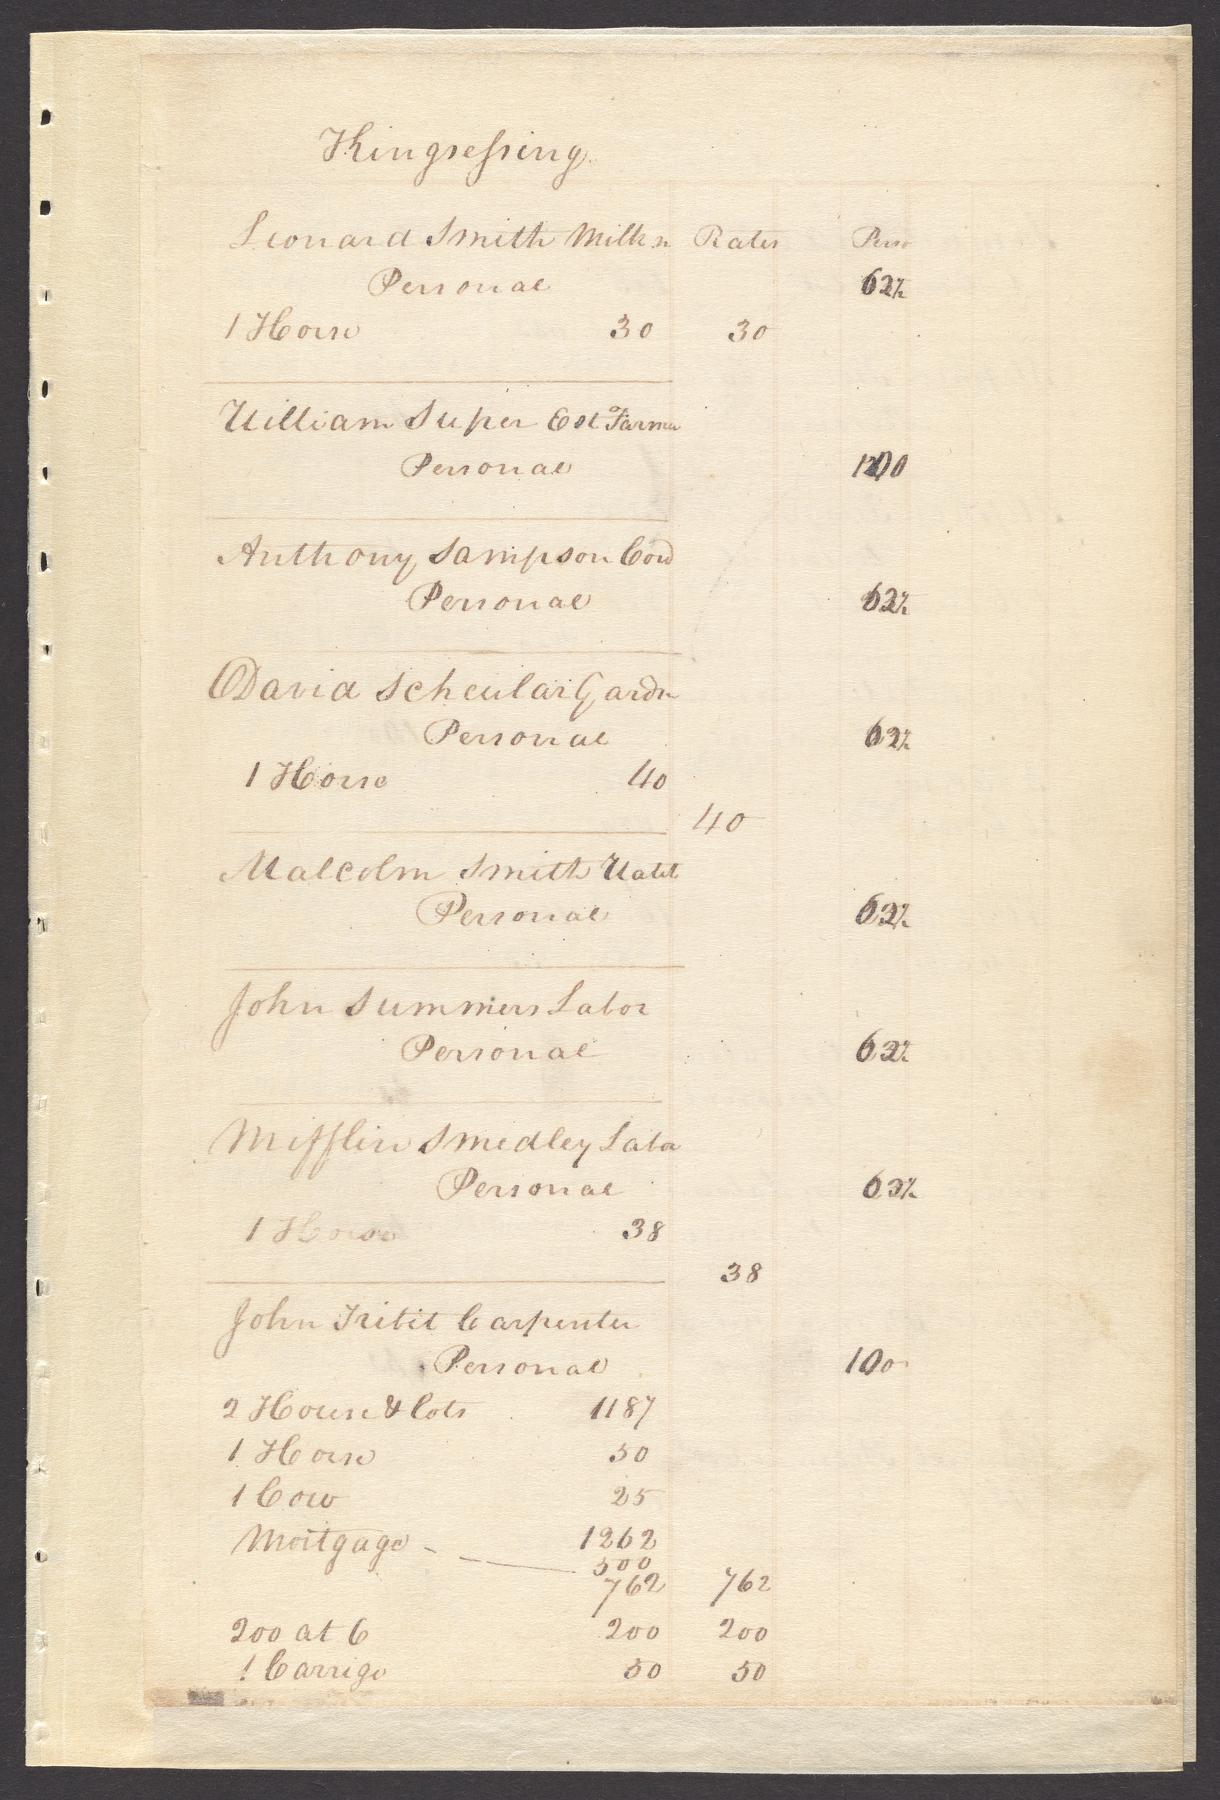 Kingsessing
Leonard Smith Milkn Rates Pers
Personal 62½
1 Horse 30 30
William Super Est Farmer
Personal 100
Anthony Sampson Cord
Personal 62½
David Scheular Gardn
Personal 62½
1 Horse 40
40
Malcolm Smith
Personal 62½
John Summers Labor
Personal 62½
Mifflin Smedley Labor
Personal 62½
1 Horse 38
38
John Tribit Carpenter
Personal 100
2 House & Lots 1187
1 Horse 50
1 Cow 25
Mortgage - 1262
500
762 762
200 at 6 200 200
1 Carrige 50 50